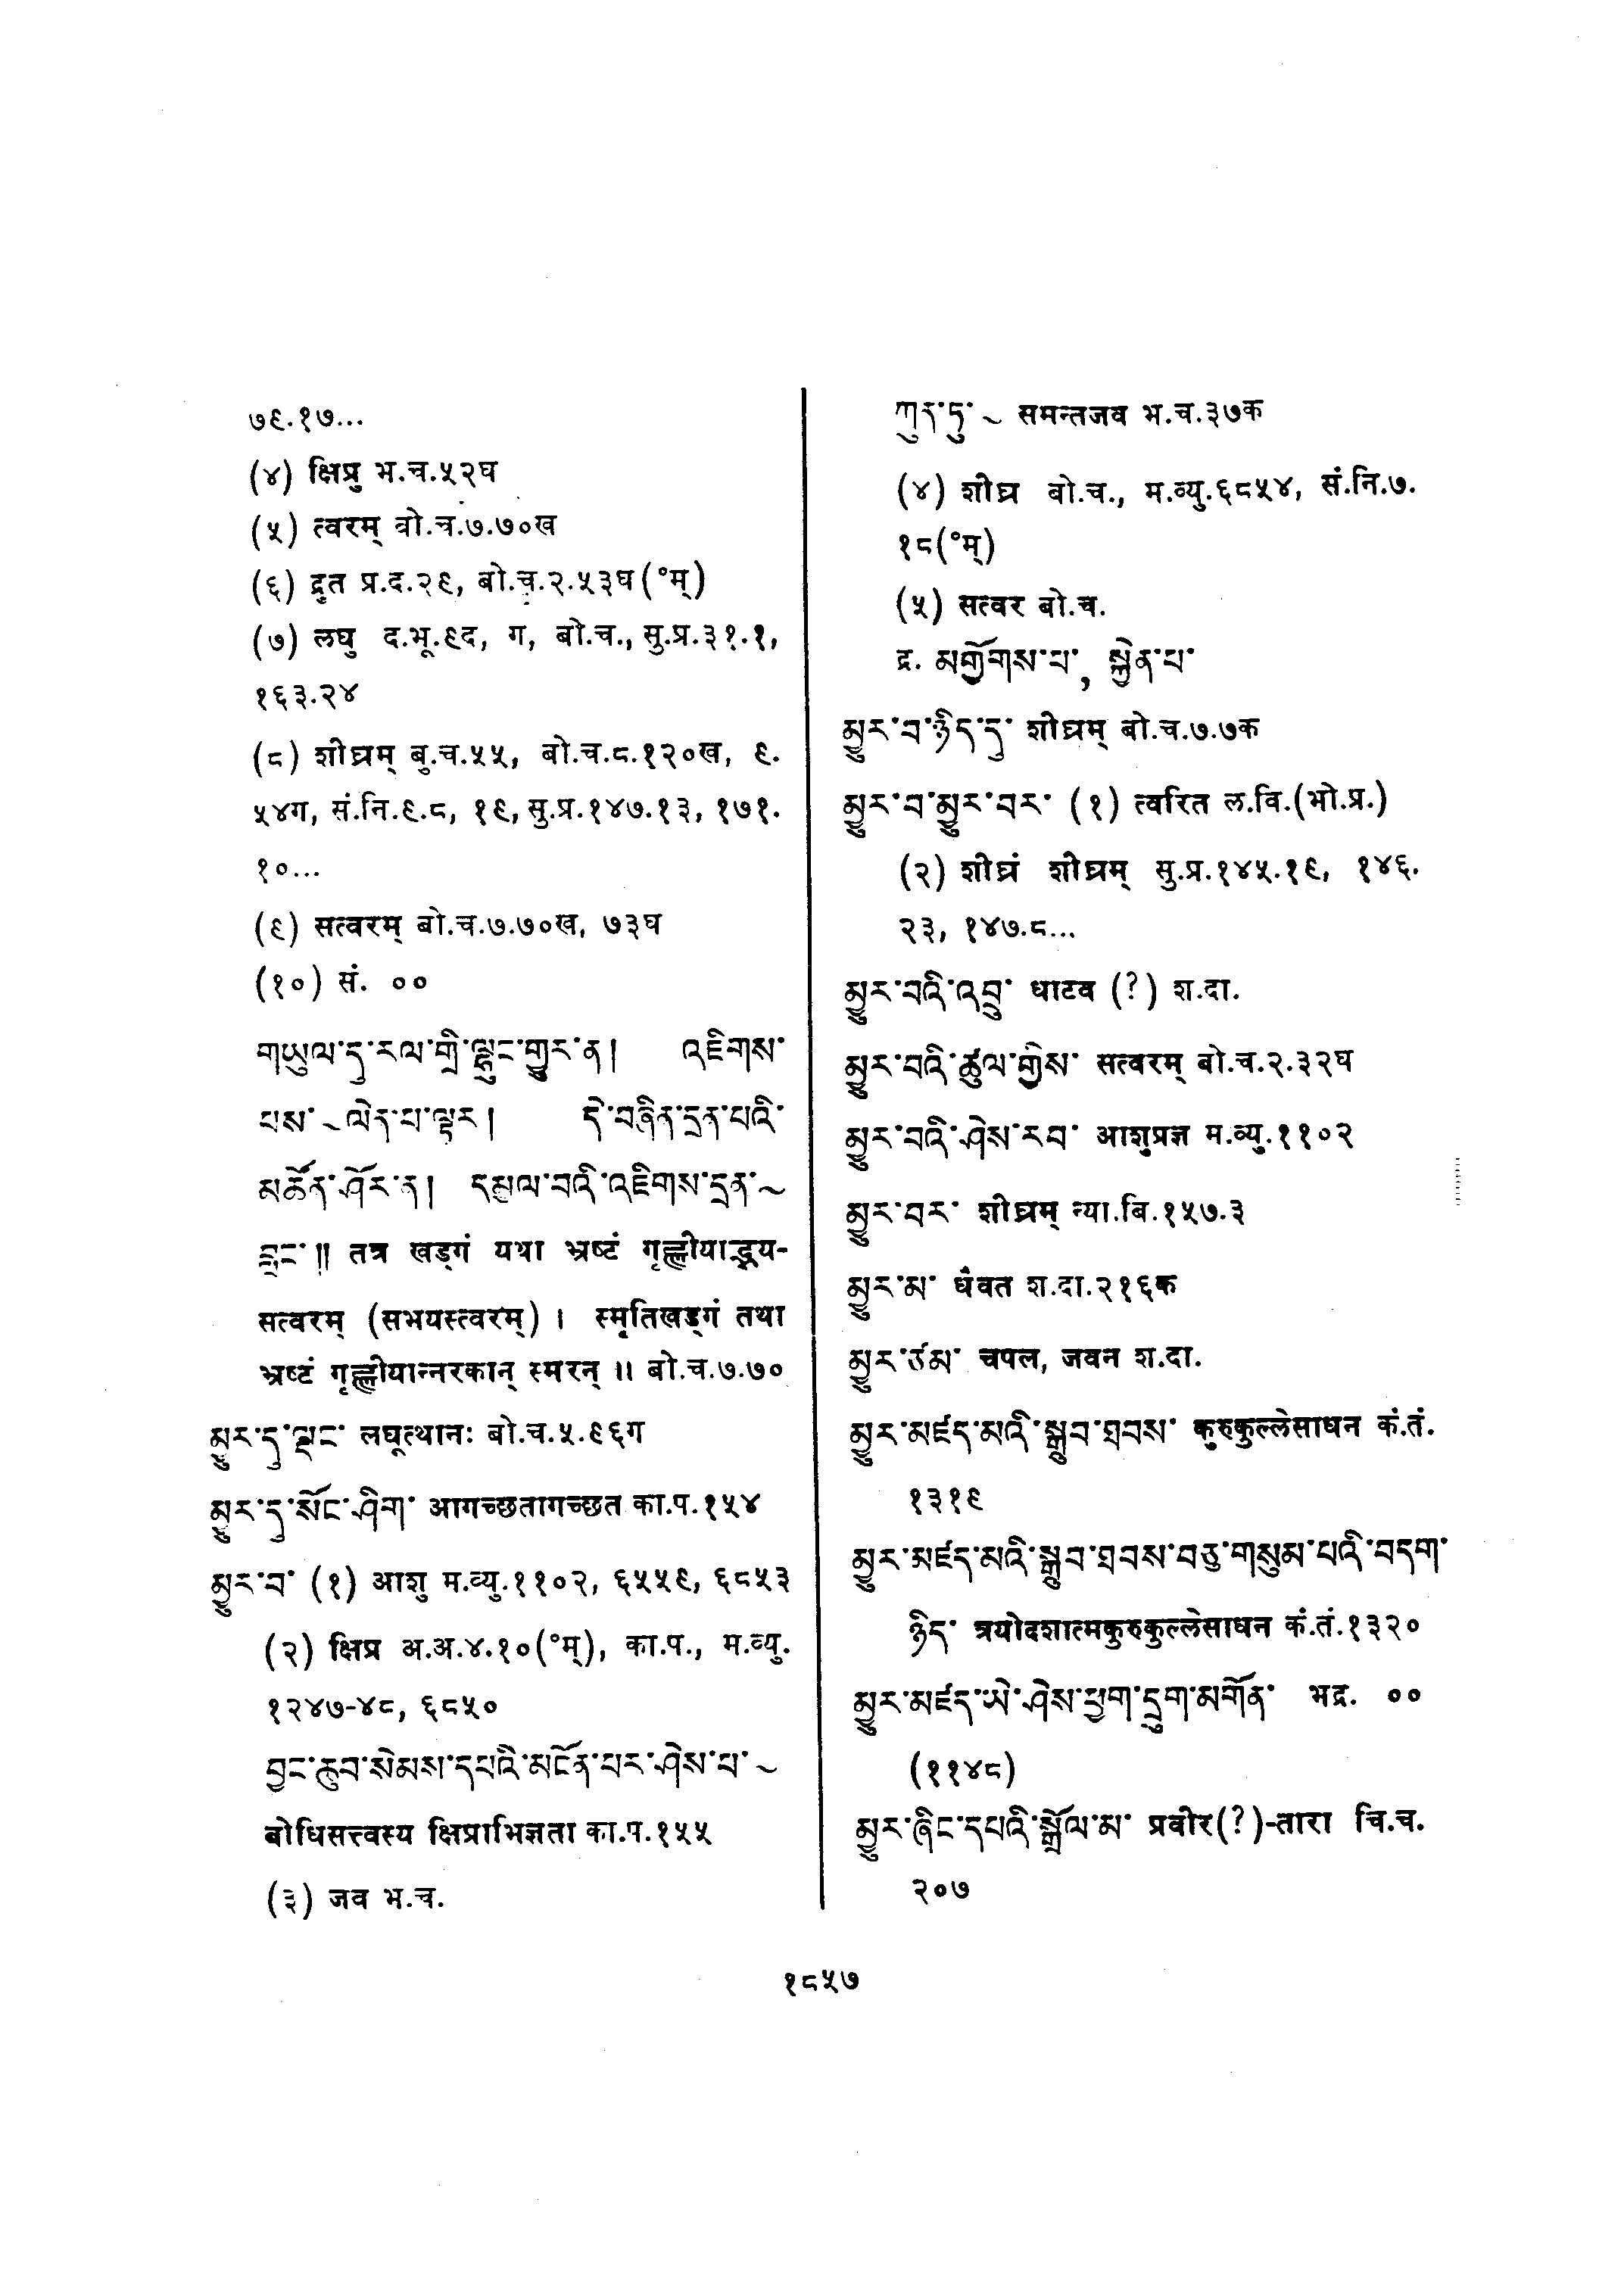 ७९.१७...
(४) क्षिप्रु भ.च.५२घ
(५) त्वरम् बो.च.७.७०ख
(६) द्रुत प्र.द.२९, बो.च.२.५३घ(°म्)
(७) लघु द.भू.९द, ग, बो.च., सु.प्र.३१.१,
१६३.२४
(८) शीघ्रम् बु.च.५५, बो.च.८.१२०ख, ९.
५४ग, सं.नि.९.८, १९, सु.प्र.१४७.१३, १७१.
१०...
(९) सत्वरम् बो.च.७.७०ख, ७३घ
(१०) सं. ००
གཡུལ་དུ་རལ་གྲི་ལྷུང་གྱུར་ན། འཇིགས་
པས་~ལེན་པ་ལྟར། དེ་བཞིན་དྲན་པའི་
མཚོན་ཤོར་ན། དམྱལ་བའི་འཇིགས་དྲན་~
བླང་༎ तत्र खड्गं यथा भ्रष्टं गृह्णीयाद्भय-
सत्वरम् (सभयस्त्वरम्) । स्मृतिखड्गं तथा
भ्रष्टं गृह्णीयान्नरकान् स्मरन् ॥ बो.च.७.७०
མྱུར་དུ་ལྡང་ लघूत्थानः बो.च.५.९६ग
མྱུར་དུ་སོང་ཤིག་ आगच्छतागच्छत का.प.१५४
མྱུར་བ་ (१) आशु म.व्यु.११०२, ६५५९, ६८५३
(२) क्षिप्र अ.अ.४.१०(°म्), का.प., म.व्यु.
१२४७-४८, ६८५०
བྱང་ཆུབ་སེམས་དཔའི་མངོན་པར་ཤེས་པ་~
बोधिसत्त्वस्य क्षिप्राभिज्ञता का.प.१५५
(३) जव भ.च.
ཀུན་ཏུ་~ समन्तजव भ.च.३७क
(४) शीघ्र बो.च., म.व्यु.६८५४, सं.नि.७.
१८(°म्)
(५) सत्वर बो.च.
द्र. མགྱོགས་པ་, སྐྱེན་པ་
མྱུར་བ་ཉིད་དུ་ शीघ्रम् बो.च.७.७क
མྱུར་བ་མྱུར་བར་ (१) त्वरित ल.वि.(भो.प्र.)
(२) शीघ्रं शीघ्रम् सु.प्र.१४५.१९, १४६.
२३, १४७.८...
མྱུར་བའི་འབྲུ་ धाटव (?) श.दा.
མྱུར་བའི་ཚུལ་གྱིས་ सत्वरम् बो.च.२.३२घ
མྱུར་བའི་ཤེས་རབ་ आशुप्रज्ञ म.व्यु.११०२
མྱུར་བར་ शीघ्रम् न्या.बि.१५७.३
མྱུར་མ་ धैवत श.दा.२१६क
མྱུར་ཙམ་ चपल, जवन श.दा.
མྱུར་མཛད་མའི་སྒྲུབ་ཐབས་ कुरुकुल्लेसाधन कं.तं.
१३१९
མྱུར་མཛད་མའི་སྒྲུབ་ཐབས་བཅུ་གསུམ་པའི་བདག་
ཉིད་ त्रयोदशात्मकुरुकुल्लेसाधन कं.तं.१३२०
མྱུར་མཛད་ཡེ་ཤེས་ཕྱག་དྲུག་མགོན་ भद्र. ००
(११४८)
མྱུར་ཞིང་དཔའི་སྒྲོལ་མ་ प्रवीर(?)-तारा चि.च.
२०७
१८५७